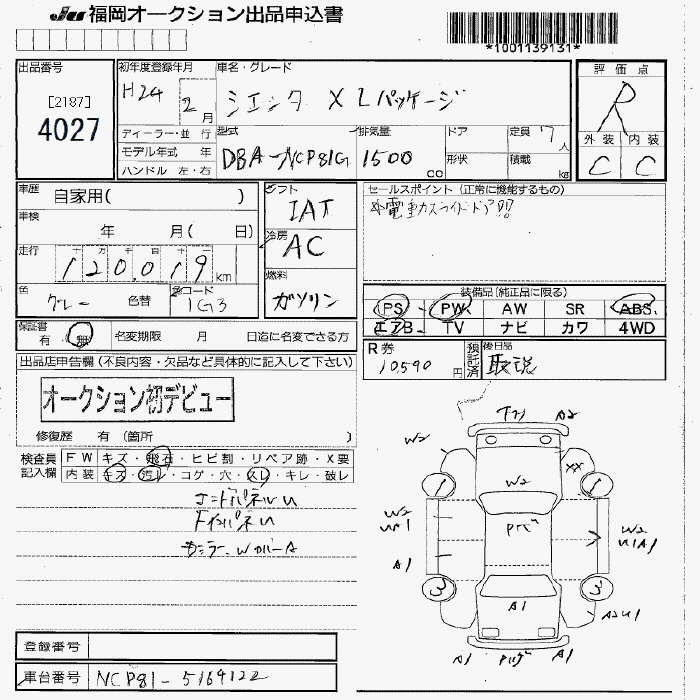 Jus 福岡オークション出品申込書
*1001139131*
出品番号
[2187]
4027
初年度登録年月
H24 2月
車名・グレード
シエンタ X Lパッケージ
評価点
R
外装 内装
C C
ディーラー・並行
モデル年式 年
ハンドル 左・右
型式
DBA-NCP81G
排気量
1500 cc
ドア
形状
定員 7人
積載 kg
車歴
自家用( )
車検
年 月( 日)
走行
120,019 km
色
グレー 色替
色コード
1G3
シフト
IAT
冷房
AC
燃料
ガソリン
セールスポイント (正常に機能するもの)
装備品(純正品に限る)
PS PW AW SR ABS
エアB TV ナビ カワ 4WD
保証書
有 無 名変期限 月 日迄に名変できる方
R券
10,590円
預託済
後日品
取説
出品店申告欄 (不良内容・欠品など具体的に記入して下さい)
オークション初デビュー
修復歴 有 (箇所 )
検査員記入欄
FW キズ・飛石・ヒビ割・リペア跡・X要
内装 キズ・汚レ・コゲ・穴・スレ・キレ・破レ
A2
W2
XX
W2
W2
A1
W2
U1A1
A1
A2U1
A1
A1
登録番号
車台番号 NCP81-5169122